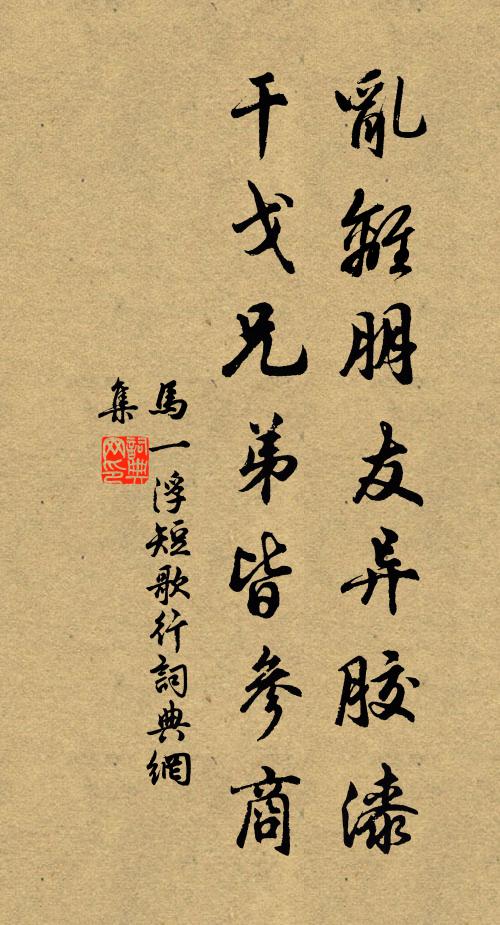 亂離朋友异膠漆
干戈兄弟皆參商
馬一浮短歌行詞典網
集
詞典网印